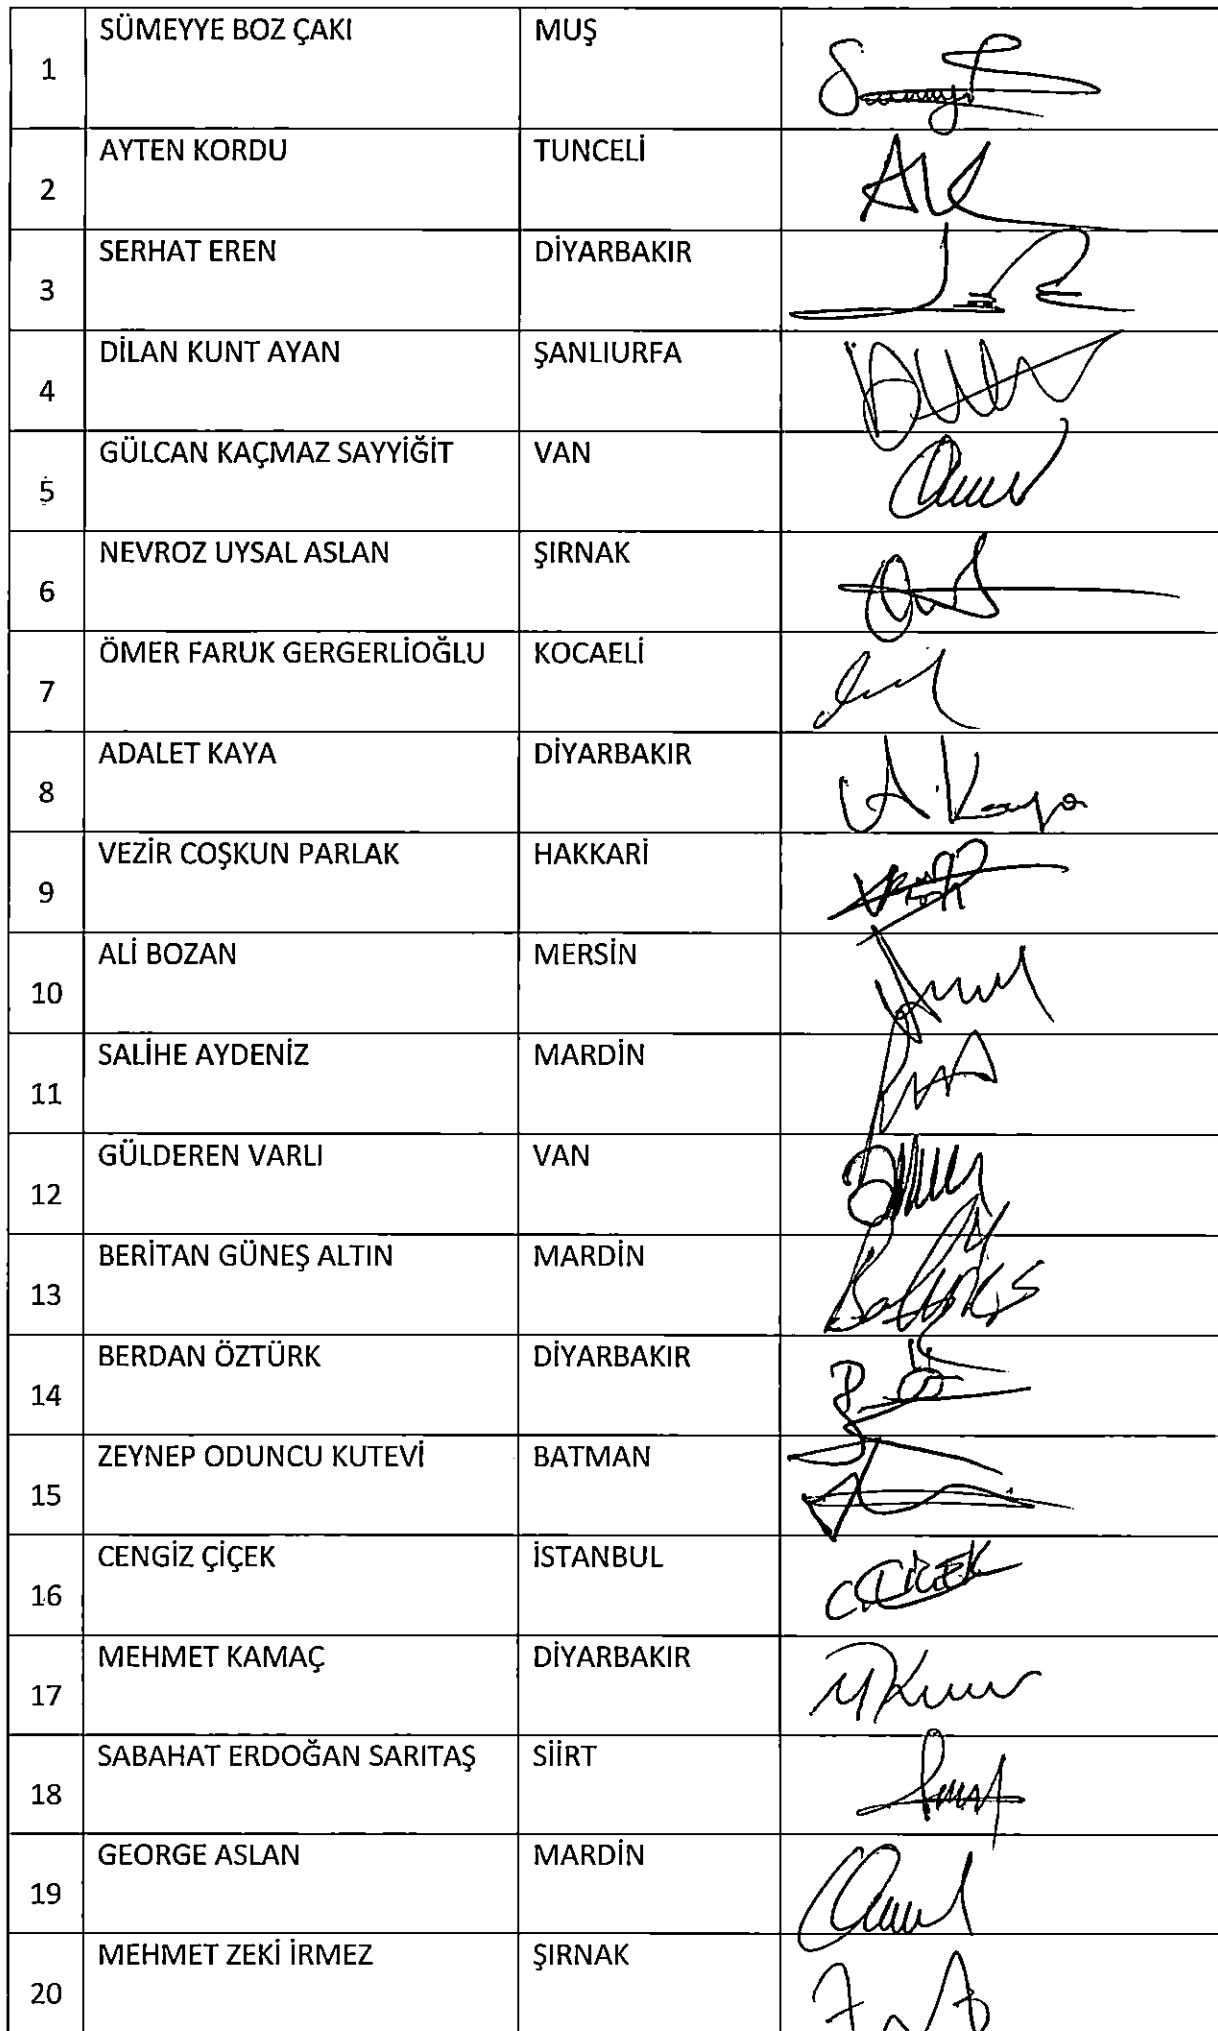 1 SÜMEYYE BOZ ÇAKI MUŞ
2 AYTEN KORDU TUNCELİ
3 SERHAT EREN DİYARBAKIR
4 DİLAN KUNT AYAN ŞANLIURFA
5 GÜLCAN KAÇMAZ SAYYİĞİT VAN
6 NEVROZ UYSAL ASLAN ŞIRNAK
7 ÖMER FARUK GERGERLİOĞLU KOCAELİ
8 ADALET KAYA DİYARBAKIR A. Kaya
9 VEZİR COŞKUN PARLAK HAKKARİ
10 ALİ BOZAN MERSİN
11 SALİHE AYDENİZ MARDİN
12 GÜLDEREN VARLI VAN
13 BERİTAN GÜNEŞ ALTIN MARDİN
14 BERDAN ÖZTÜRK DİYARBAKIR
15 ZEYNEP ODUNCU KUTEVİ BATMAN
16 CENGİZ ÇİÇEK İSTANBUL C. ÇİÇEK
17 MEHMET KAMAÇ DİYARBAKIR
18 SABAHAT ERDOĞAN SARITAŞ SİİRT
19 GEORGE ASLAN MARDİN
20 MEHMET ZEKİ İRMEZ ŞIRNAK